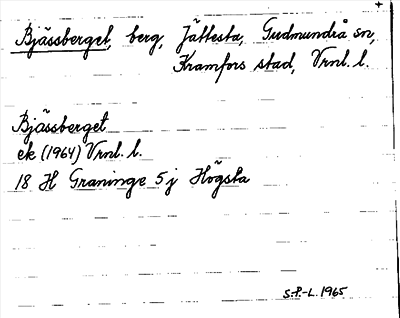 +
Bjässberget, berg, Jättesta, Gudmundrå sn,
Kramfors stad, Vrnl. l.
Bjässberget
ek (1964) Vrnl. l.
18 H Graninge 5 j Högsta
S.P.-L. 1965